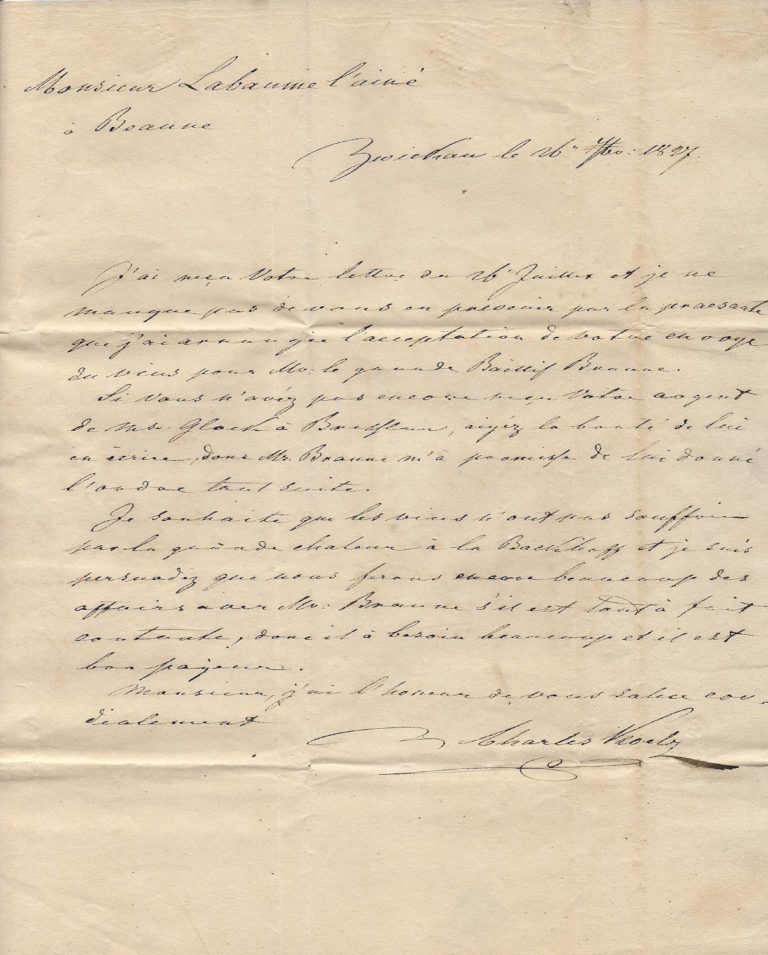 Monsieur Labaume l'ainé
à Beaune
Zwickau le 26 7br: 1827.
J'ai reçu Votre lettre du 26 Juillet et je ne
manque pas de vous en prevenir par la praesante
que j'ai arrangée l'acceptation de votre envoye
du vins pour Mr: le grande Baillif Braune.
Si Vous n'avéz pas encore reçu Votre argent
de Mr. Glock à Bresslau, aiyéz la bonté de lui
en écrire, donc Mr. Braune m'à promisse de lui donné
l'ordre tout suite.
Je souhaite que les vins n'ont pas souffrir
par la grànde chaleur à la Backhoff et je suis
persuadez que nous ferons encore beaucoup des
affairs avec Mr: Braune s'il est tout à fait
contente, donc il à besoin beaucoup et il est
bon payeur.
Monsieur, j'ai l'honeur de vous saluer cor-
dialement
Charles